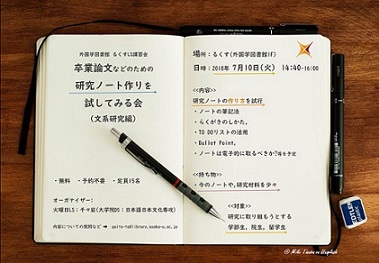 外国学図書館 るくすLS講習会
卒業論文などのための
研究ノート作りを
試してみる会
(文系研究編)
・無料 ・予約不要 ・定員15名
オーガナイザー:
火曜日LS:千々岩(大学院D5:日本語日本文化専攻)
場所:るくす(外国学図書館1F)
日時:2018年 7月10日(火) 14:40-16:00
<内容>
研究ノートの作り方を試行
・ノートの筆記法
・らくがきのしかた,
・TO DOリストの活用
・Bullet Point,
・ノートは電子的に取るべきか?等を予定
<持ち物>
・今のノートや,研究材料を少々
<対象>
研究に取り組もうとする
学部生,院生,留学生